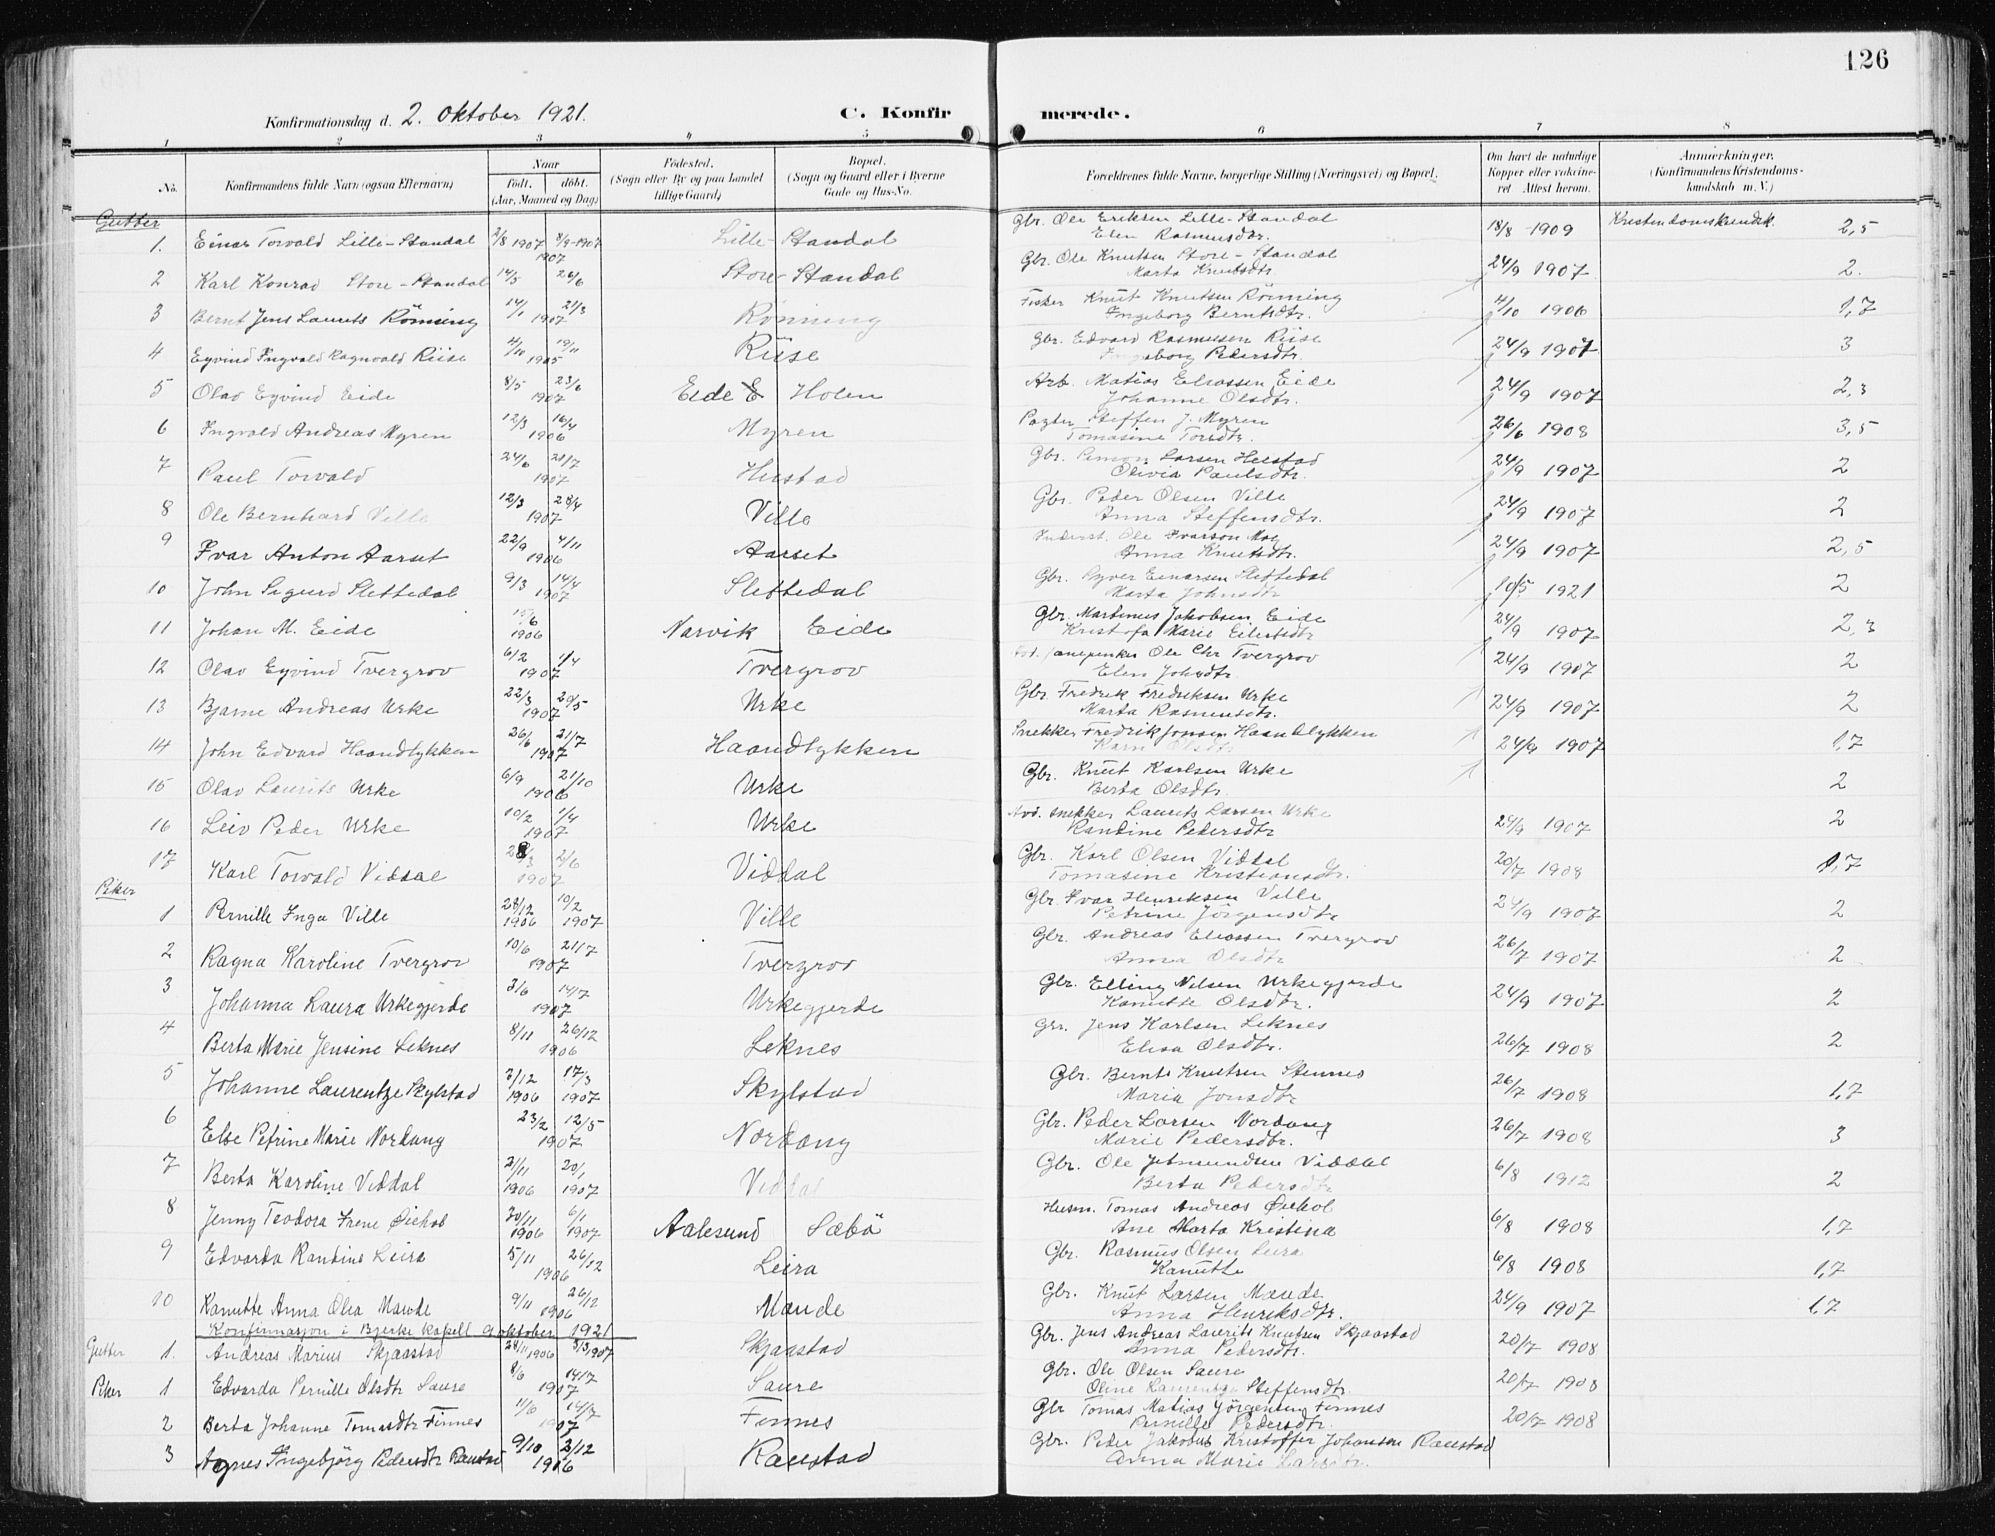 126
Konfirmationsdag d. 2. Oktober 1921. C. Konfirmerede.
1 2 3 4 5 6 7 8
No. Konfirmandens fulde Navn (ogsaa Efternavn) Naar født. døbt. (Aar, Maaned og Dag) Fødested. (Sogn eller By og paa Landet tillige Gaard) Bopæl. (Sogn og Gaard eller i Byerne Gade og Hus-No. Forældrenes fulde Navne, borgerlige Stilling (Næringsvei) og Bopæl. Om havt de naturlige Kopper eller vakcineret Attest herom. Anmærkninger. (Konfirmandens Kristendomskundskab m. V.)
Gutter
1. Einar Torvald Lille-Standal 2/8 1907 8/9-1907 Lille-Standal Gbr. Ole Eriksen Lille-Standal Elen Rasmusdtr. 18/8 1909 Kristendomskundsk. 2,5
2 Karl Konrad Store-Standal 14/5 26/6 1907 Store-Standal Gbr. Ole Knutsen Store-Standal Marta Knutsdtr. 24/9 1907 2.
3 Bernt Jens Laurits Rönning 14/1 21/3 1907 Rönning Fisker Knut Knutsen Rönning Ingeborg Berntsdtr. 4/10 1906 1,7
4 Eyvind Ingvald Ragnvald Riise 4/10 19/11 1905 Riise Gbr. Edvard Rasmusen Riise Ingeborg Pedersdtr. 24/9 1907 3
5 Olav Eyvind Eide 8/5 23/6 1907 Eide Holen Arb. Matias Eliassen Eide Johanne Olsdtr. 24/9 1907 2,3
6 Ingvald Andreas Myren 12/3 16/4 1906 Myren Steffen J. Myren Tomasine Torsdtr. 26/6 1908 3,5
7 Paul Torvald 24/6 21/7 1907 Hustad Gbr. Larsen Hustad Olivia Paulsdtr. 24/9 1907 2
8 Ole Bernhard Ville 12/3 28/4 1907 Ville Gbr. Peder Olsen Ville Anna Steffensdtr. 24/9 1907 2
9 Ivar Anton Aarset 22/9 4/11 1906 Aarset Inderst. Ole Ivarson Moe Anna Knutsdtr. 24/9 1907 2,5
10 John Sigurd Slettedal 9/3 14/4 1907 Slettedal Gbr. Syver Einarsen Slettedal Marta Johnsdtr 10/5 1921 2
11 Johan M. Eide 15/6 1906 Narvik Eide Gbr. Martinus Jakobsen Eide Kristofa Marie Eilertsdtr 24/9 1907 2,3
12 Olav Eyvind Tvergrov 6/2 1/4 1907 Tvergrov Ole Chr Tvergrov Elen Johsdtr. 24/9 1907 2
13 Bjarne Andreas Urke 22/3 20/5 1907 Urke Gbr. Fredrik Fredriksen Urke Marta Rasmusdtr. 24/9 1907 2
14 John Edvard Haandlykken 26/6 21/7 1907 Haandlykken Snekker Fredrik Jonsen Haandlykken Karn Olsdtr 24/9 1907 1,7
15 Olav Laurits Urke 6/9 21/10 1906 Urke Gbr. Knut Karlsen Urke Berta Olsdtr. 2
16 Leiv Peder Urke 10/2 1/4 1907 Urke snekker Laurits Larsen Urke Randine Pedersdtr 24/9 1907 2
17 Karl Torvald Viddal 2/6 1907 Viddal Gbr. Karl Olsen Viddal Tomasine Kristiansdtr. 20/7 1908 1,7
Piker
1 Pernille Inga Ville 28/12 1906 10/2 1907 Ville Gbr. Ivar Henriksen Ville Petrine Jörgensdtr 24/9 1907 2
2 Ragna Karoline Tvergrov 10/6 21/7 1907 Tvergrov Gbr. Andreas Eliassen Tvergrov Anna Olsdtr 26/7 1907 2
3 Johanna Laura Urkegjerde 3/6 14/7 1907 Urkegjerde Gbr. Elling Nilsen Urkegjerde Kanutte Olsdtr. 24/9 1907 2
4 Berta Marie Jensine Leknes 8/11 26/12 1906 Leknes Gbr. Jens Karlsen Leknes Elisa Olsdtr. 26/7 1908 2
5 Johanne Laurentze Skylstad 2/12 1906 17/3 1907 Skylstad Gbr. Bernt Knutsen Stennes Maria Jonsdtr 26/7 1908 1,7
6 Else Petrine Marie Nordang 23/2 12/5 1907 Nordang Gbr. Peder Larsen Nordang Marie Pedersdtr. 26/7 1908 3
7 Berta Karoline Viddal 2/11 1906 20/1 1907 Viddal Gbr. Ole Viddal Berta Pedersdtr 6/8 1912 2
8 Jenny Teodora Irene Øiehol 20/11 1906 6/1 1907 Aalesund Sæbö Husm. Tomas Andreas Øiehol Ane Marta Kristina 6/8 1908 1,7
9 Edvarda Randine Leira 5/11 26/12 1906 Leira Gbr. Rasmus Olsen Leira Kanutte 6/8 1908 1,7
10 Kanutte Anna Olea Maude 9/11 26/12 1906 Maude Gbr. Knut Larsen Maude Anna Henriksdtr. 24/9 1907 1,7
Konfirmasjon i Bjerke kapell 9 oktober 1921
Gutter 1. Andreas Marius Skjaastad 28/11 1906 3/3 1907 Skjaastad Gbr. Jens Andreas Laurits Knutsen Skjaastad Anna Pedersdtr. 20/7 1908
Piker 1 Edvarda Pernille Olsdtr Saure 8/6 14/7 1907 Saure Gbr. Ole Olsen Saure Oline Laurentze Steffensdtr. 20/7 1908
2 Berta Johanne Tomasdtr Finnes 11/6 14/7 1907 Finnes Gbr Tomas Matias Jörgensen Finnes Pernille Pedersdtr. 20/7 1908
3 Agnes Ingebjörg Pedersdtr Raustad 9/10 2/12 1906 Raustad Gbr. Peder Jakobus Kristoffer Johansen Raustad Anna Marie Larsdtr.